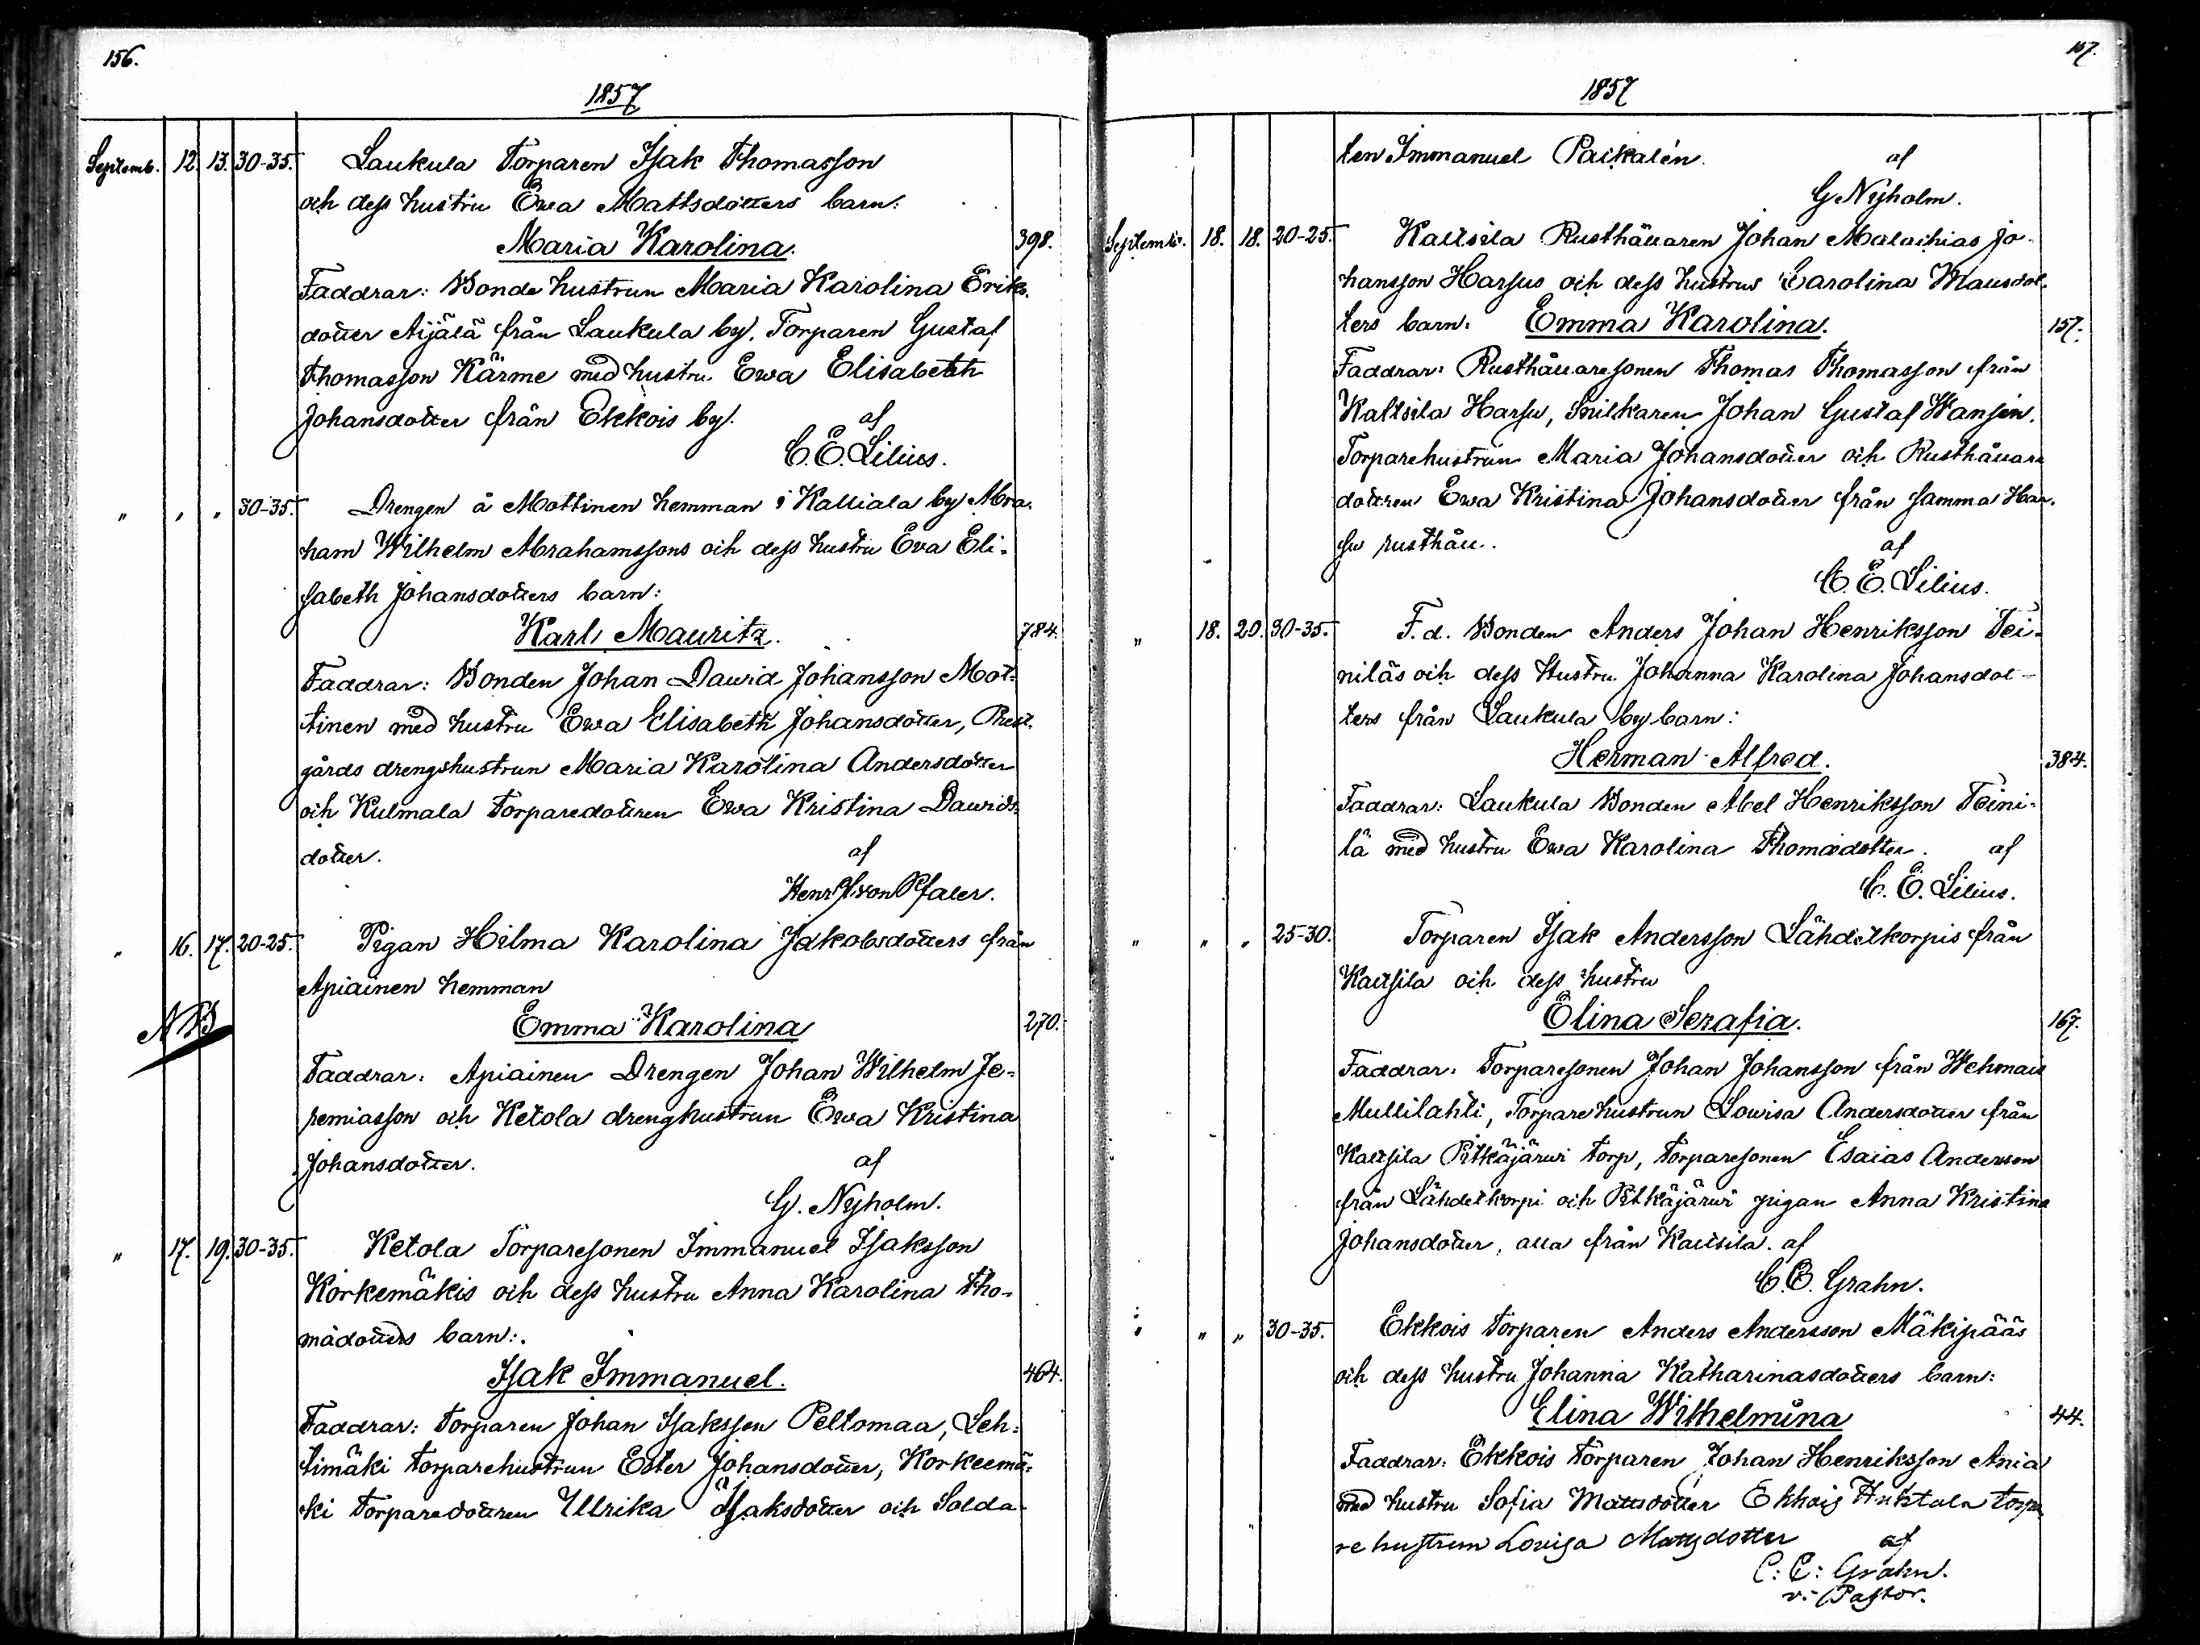 156.
1857
Septemb. 12. 13. 30-35. Laukula Torparen Isak Thomasson
och dess hustru Ewa Mattsdotters barn:
Maria Karolina. 398.
Faddrar: Bonde hustrun Maria Karolina Eriks-
dotter Äijälä från Laukula by. Torparen Gustaf
Thomasson Kärme med hustru Ewa Elisabeth
Johansdotter från Ekkois by. af
C. E. Lilius.
" " " 30-35. Drengen å Mottinen hemman i Kalliala by Abra-
ham Wilhelm Abrahamssons och dess hustru Eva Eli-
sabeth Johansdotters barn:
Karl Mauritz. 784.
Faddrar: Bonden Johan Dawid Johansson Mot-
tinen med hustru Ewa Elisabeth Johansdotter, Prest-
gårds drengshustrun Maria Karolina Andersdotter
och Kulmala Torparedottren Ewa Kristina Dawids-
dotter. af
Henr. J. von Pfaler.
" 16. 17. 20-25. Pigan Hilma Karolina Jakobsdotters från
Apiainen hemman
NB Emma Karolina 270.
Faddrar: Apiainen Drengen Johan Wilhelm Je-
remiasson och Ketola drenghustrun Ewa Kristina
Johansdotter. af
G. Nyholm.
" 17. 19. 30-35. Ketola Torparesonen Immanuel Isaksson
Korkemäkis och dess hustru Anna Karolina Tho-
mädotters barn:
Isak Immanuel. 464.
Faddrar: Torparen Johan Isaksson Peltomaa, Leh-
timäki Torparehustrun Ester Johansdotter, Korkeemä-
ki Torparedottren Ullrika Isaksdotter och Solda-
157.
1857
ten Immanuel Paikalén. af
G Nyholm.
Septemb. 18. 18. 20-25. Kaltsila Rusthållaren Johan Malachias Jo-
hansson Harsus och dess hustrus Carolina Mausdot-
ters barn: Emma Karolina. 157.
Faddrar: Rusthållaresonen Thomas Thomasson från
Kaltsila Harsu, Snikaren Johan Gustaf Wansén.
Torparehustrun Maria Johansdotter och Rusthållare
dottren Ewa Kristina Johansdotter från samma Har-
su rusthåll. af
C. E. Lilius.
" 18. 20. 30-35. F. d. Bonden Anders Johan Henriksson Tei-
niläs och dess Hustru Johanna Karolina Johansdot-
ters från Laukula by barn:
Herman Alfred. 384.
Faddrar: Laukula Bonden Abel Henriksson Teini-
lä med hustru Ewa Karolina Thomædotter. af
C. E. Lilius.
" " " 25-30. Torparen Isak Andersson Lähdetkorpis från
Kaltsila och dess hustru
Elina Serafia. 167.
Faddrar: Torparesonen Johan Johansson från Wehmais
Mullilahti, Torparehustrun Lowisa Andersdotter från
Kaltsila Pitkäjärwi Torp, Torparesonen Esaias Anderson
från Lähdetkorpi och Pitkäjärwi pigan Anna Kristina
Johansdotter, alla från Kaltsila. af
C. E. Grahn.
" " " 30-35. Ekkois Torparen Anders Andersson Mäkipääs
och dess hustru Johanna Katharinasdotters barn:
Elina Wilhelmina 44.
Faddrar: Ekkois Torparen Johan Henriksson Ania
med hustru Sofia Mattsdotter Ekkois Huktala torpa
re hustrun Lovisa Mattsdotter af
C: E: Grahn.
v: Pastor.